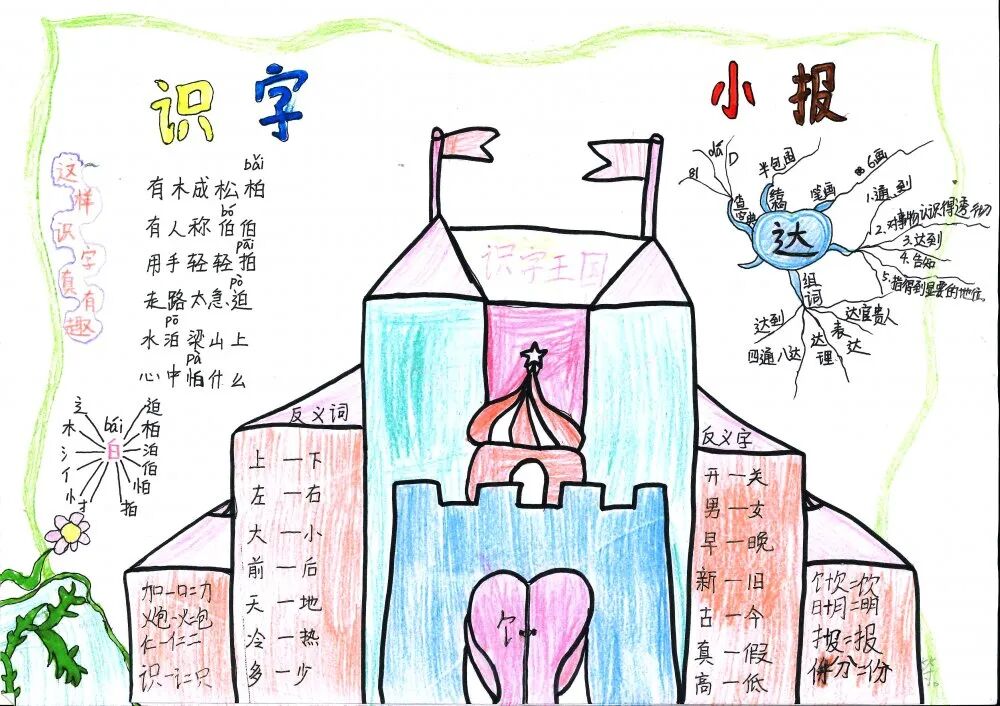 识字
小报
这样识字真有趣
bǎi
有木成松柏
bó
有人称伯伯
pāi
用手轻轻拍
pò
走路太急迫
pō
水泊梁山上
pà
心中怕什么
bái
白
辶
木
氵
亻
忄
扌
迫
柏
泊
伯
怕
拍
达
查字典
dá
D
结构
半包围
笔画
6画
1.通,到
2.对事物认识得透彻
3.达到
4.告知
5.指得到显要的地位。
组词
达到
四通八达
达理
表达
达官贵人
识字王国
反义词
上—下
左—右
大—小
前—后
天—地
冷—热
多—少
反义字
开—关
男—女
早—晚
新—旧
古—今
真—假
高—低
加-口=力
炮-火=包
仁-亻=二
识-讠=只
饣
饣欠=饮
日+月=明
扌+𠬝=报
亻+分=份